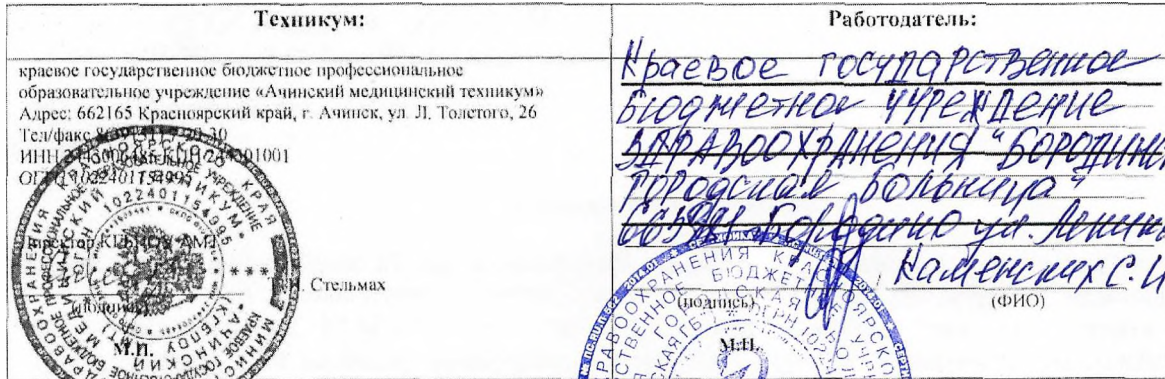 Техникум:
краевое государственное бюджетное профессиональное
образовательное учреждение «Ачинский медицинский техникум»
Адрес: 662165 Красноярский край, г. Ачинск, ул. Л. Толстого, 26
Тел/факс
ИНН
ОГРН 1022401154995
Директор КГБПОУ АМТ
Стельмах
(подпись)
М.П.
Работодатель:
Краевое государственное
бюджетное учреждение
здравоохранения "Бородинск
городская больница"
Бородино ул. Ленина
Каменских С. И
(подпись)
(ФИО)
М.П.